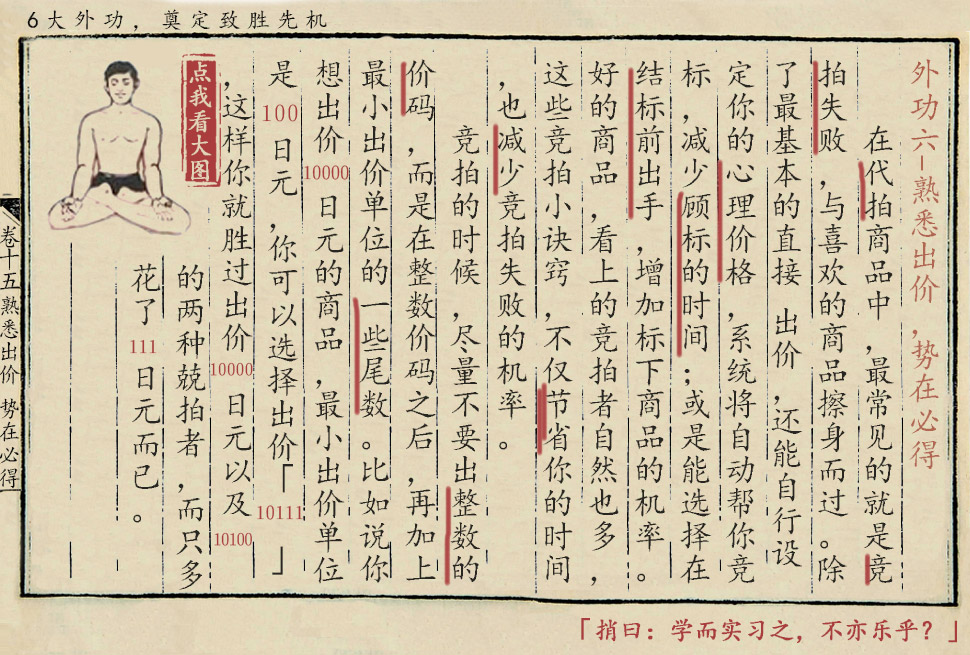 6大外功，奠定致胜先机
外功六-熟悉出价，势在必得
在代拍商品中，最常见的就是竞
拍失败，与喜欢的商品擦身而过。除
了最基本的直接 出价，还能自行设
定你的心理价格，系统将自动帮你竞
标，减少顾标的时间；或是能选择在
结标前出手，增加标下商品的机率。
好的商品，看上的竞拍者自然也多，
这些竞拍小诀窍，不仅节省你的时间
，也减少竞拍失败的机率。
竞拍的时候，尽量不要出整数的
价码，而是在整数价码之后，再加上
最小出价单位的一些尾数。比如说你
想出价10000日元的商品，最小出价单位
是100日元，你可以选择出价「10111」
，这样你就胜过出价10000日元以及10100
的两种兢拍者，而只多
花了111日元而已。
点我看大图
卷十五 熟悉出价 势在必得
「捎曰：学而实习之，不亦乐乎？」